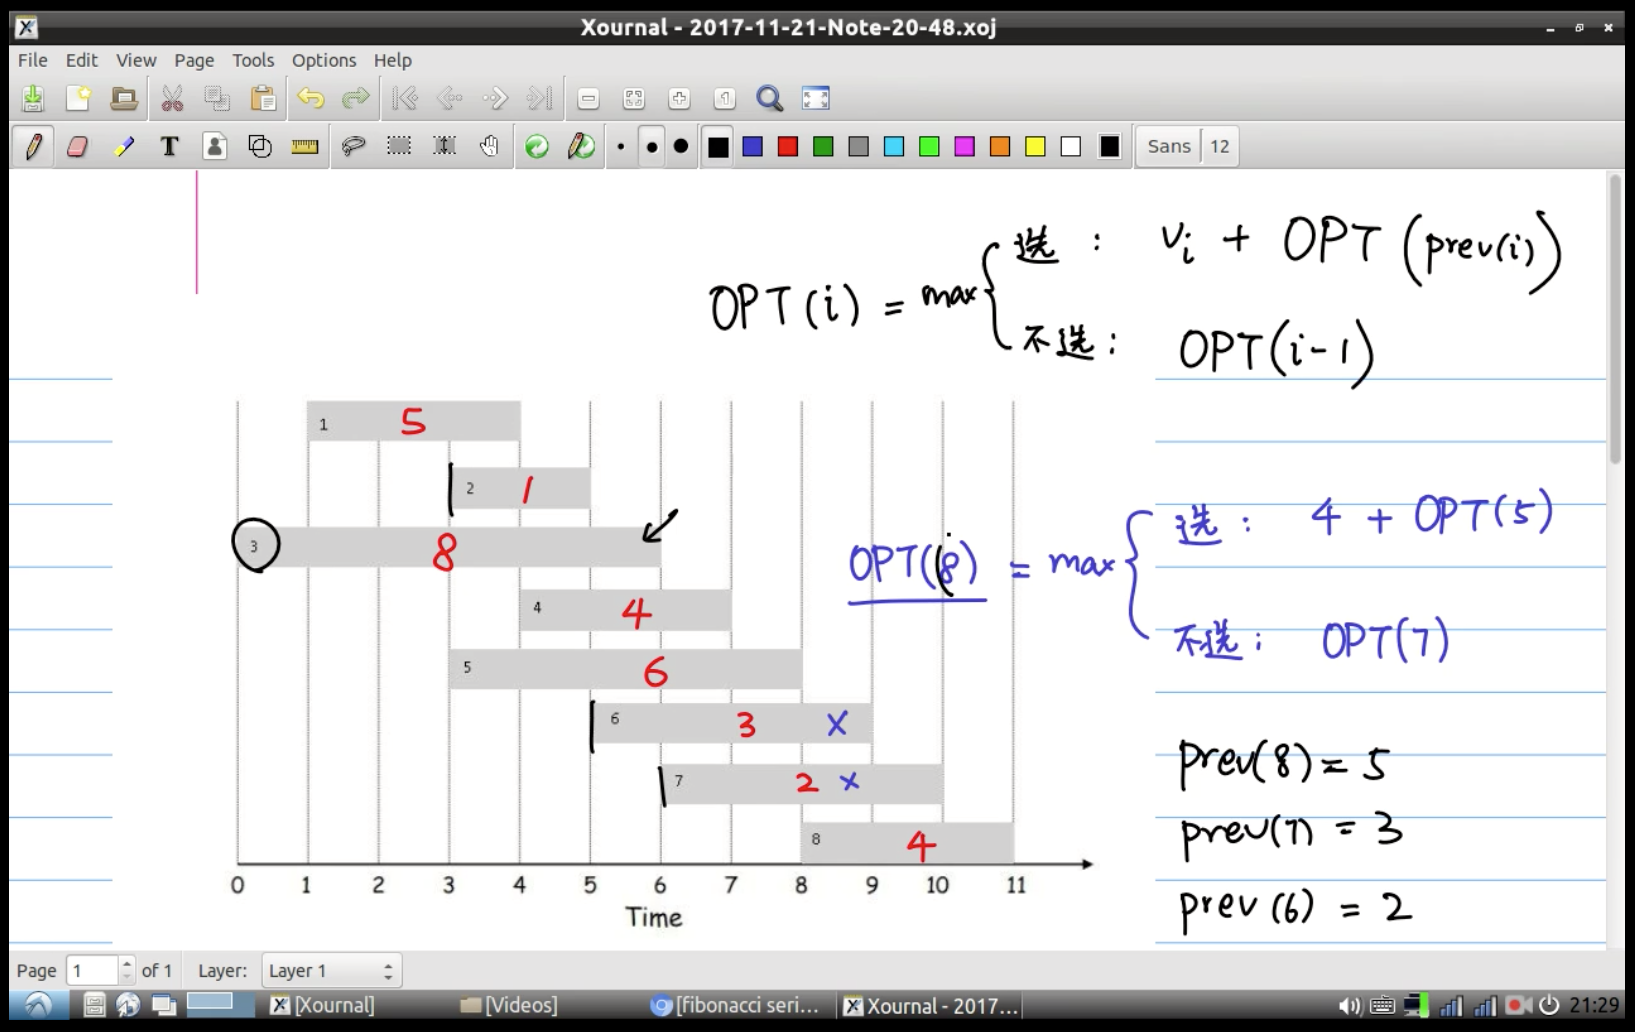 Xournal - 2017-11-21-Note-20-48.xoj
File Edit View Page Tools Options Help
Sans 12
选 : vi + OPT (prev(i))
OPT(i) = max
不选 : OPT(i-1)
1 5
2 1
3 8
4 4
5 6
6 3 x
7 2 x
8 4
0 1 2 3 4 5 6 7 8 9 10 11
Time
选 : 4 + OPT(5)
OPT(8) = max
不选 : OPT(7)
prev(8) = 5
prev(7) = 3
prev(6) = 2
Page 1 of 1 Layer: Layer 1
[Xournal] [Videos] [fibonacci seri... Xournal - 2017... 21:29